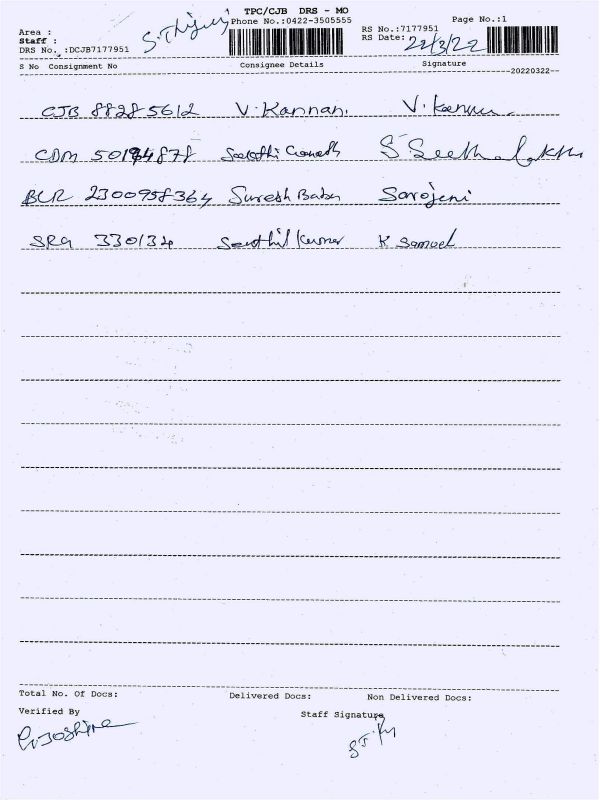 TPC/CJB DRS - MO
Phone No.:0422-3505555
Page No.:1
Area :
Staff :
DRS No. :DCJB7177951
RS No.:7177951
RS Date: 22/3/22
S No Consignment No Consignee Details Signature
20220322
CJB 88285612 V. Kannan. V. Kannan.
CDM 50194878
BLR 2300958364 Suresh Babu Sarojeni
SRG 330134 Senthil Kumar K Samuel
Total No. Of Docs: Delivered Docs: Non Delivered Docs:
Verified By
Staff Signature